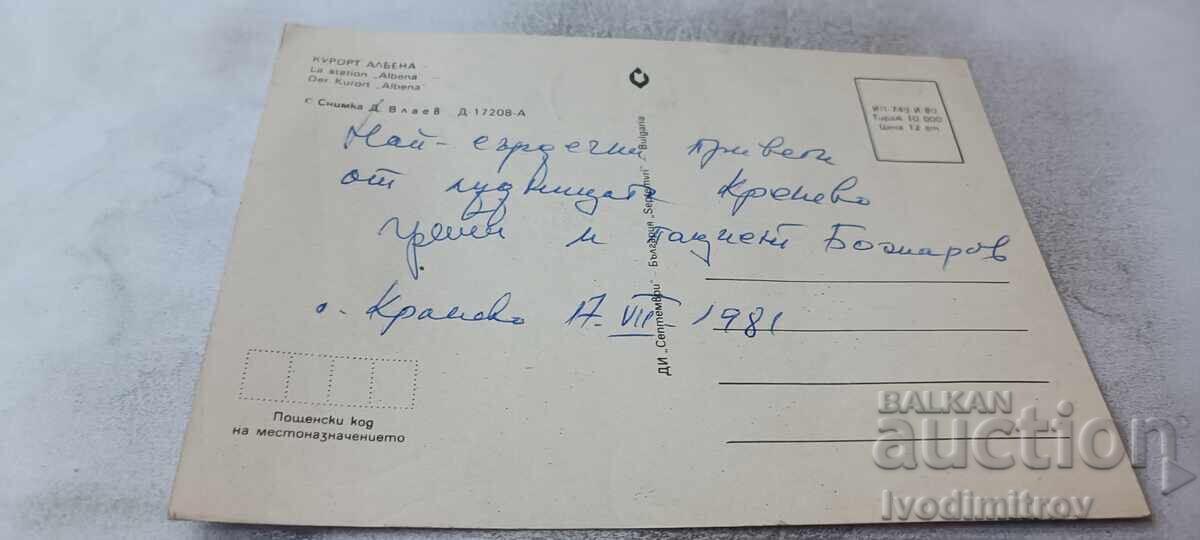 КУРОРТ АЛБЕНА
La station „Albena“
Der Kurort „Albena“
Снимка Д. Влаев Д-17208-А
ИП-749 И 80
Тираж 10 000
Цена 12 ст
Най-сърдечни привети
от лудницата Кранево
и пациент Божаров
с. Кранево 17. VII 1981
ДИ „Септември“ - България "Septemvri" - Bulgaria
Пощенски код
на местоназначението
BALKAN
auction
Ivodimitrov